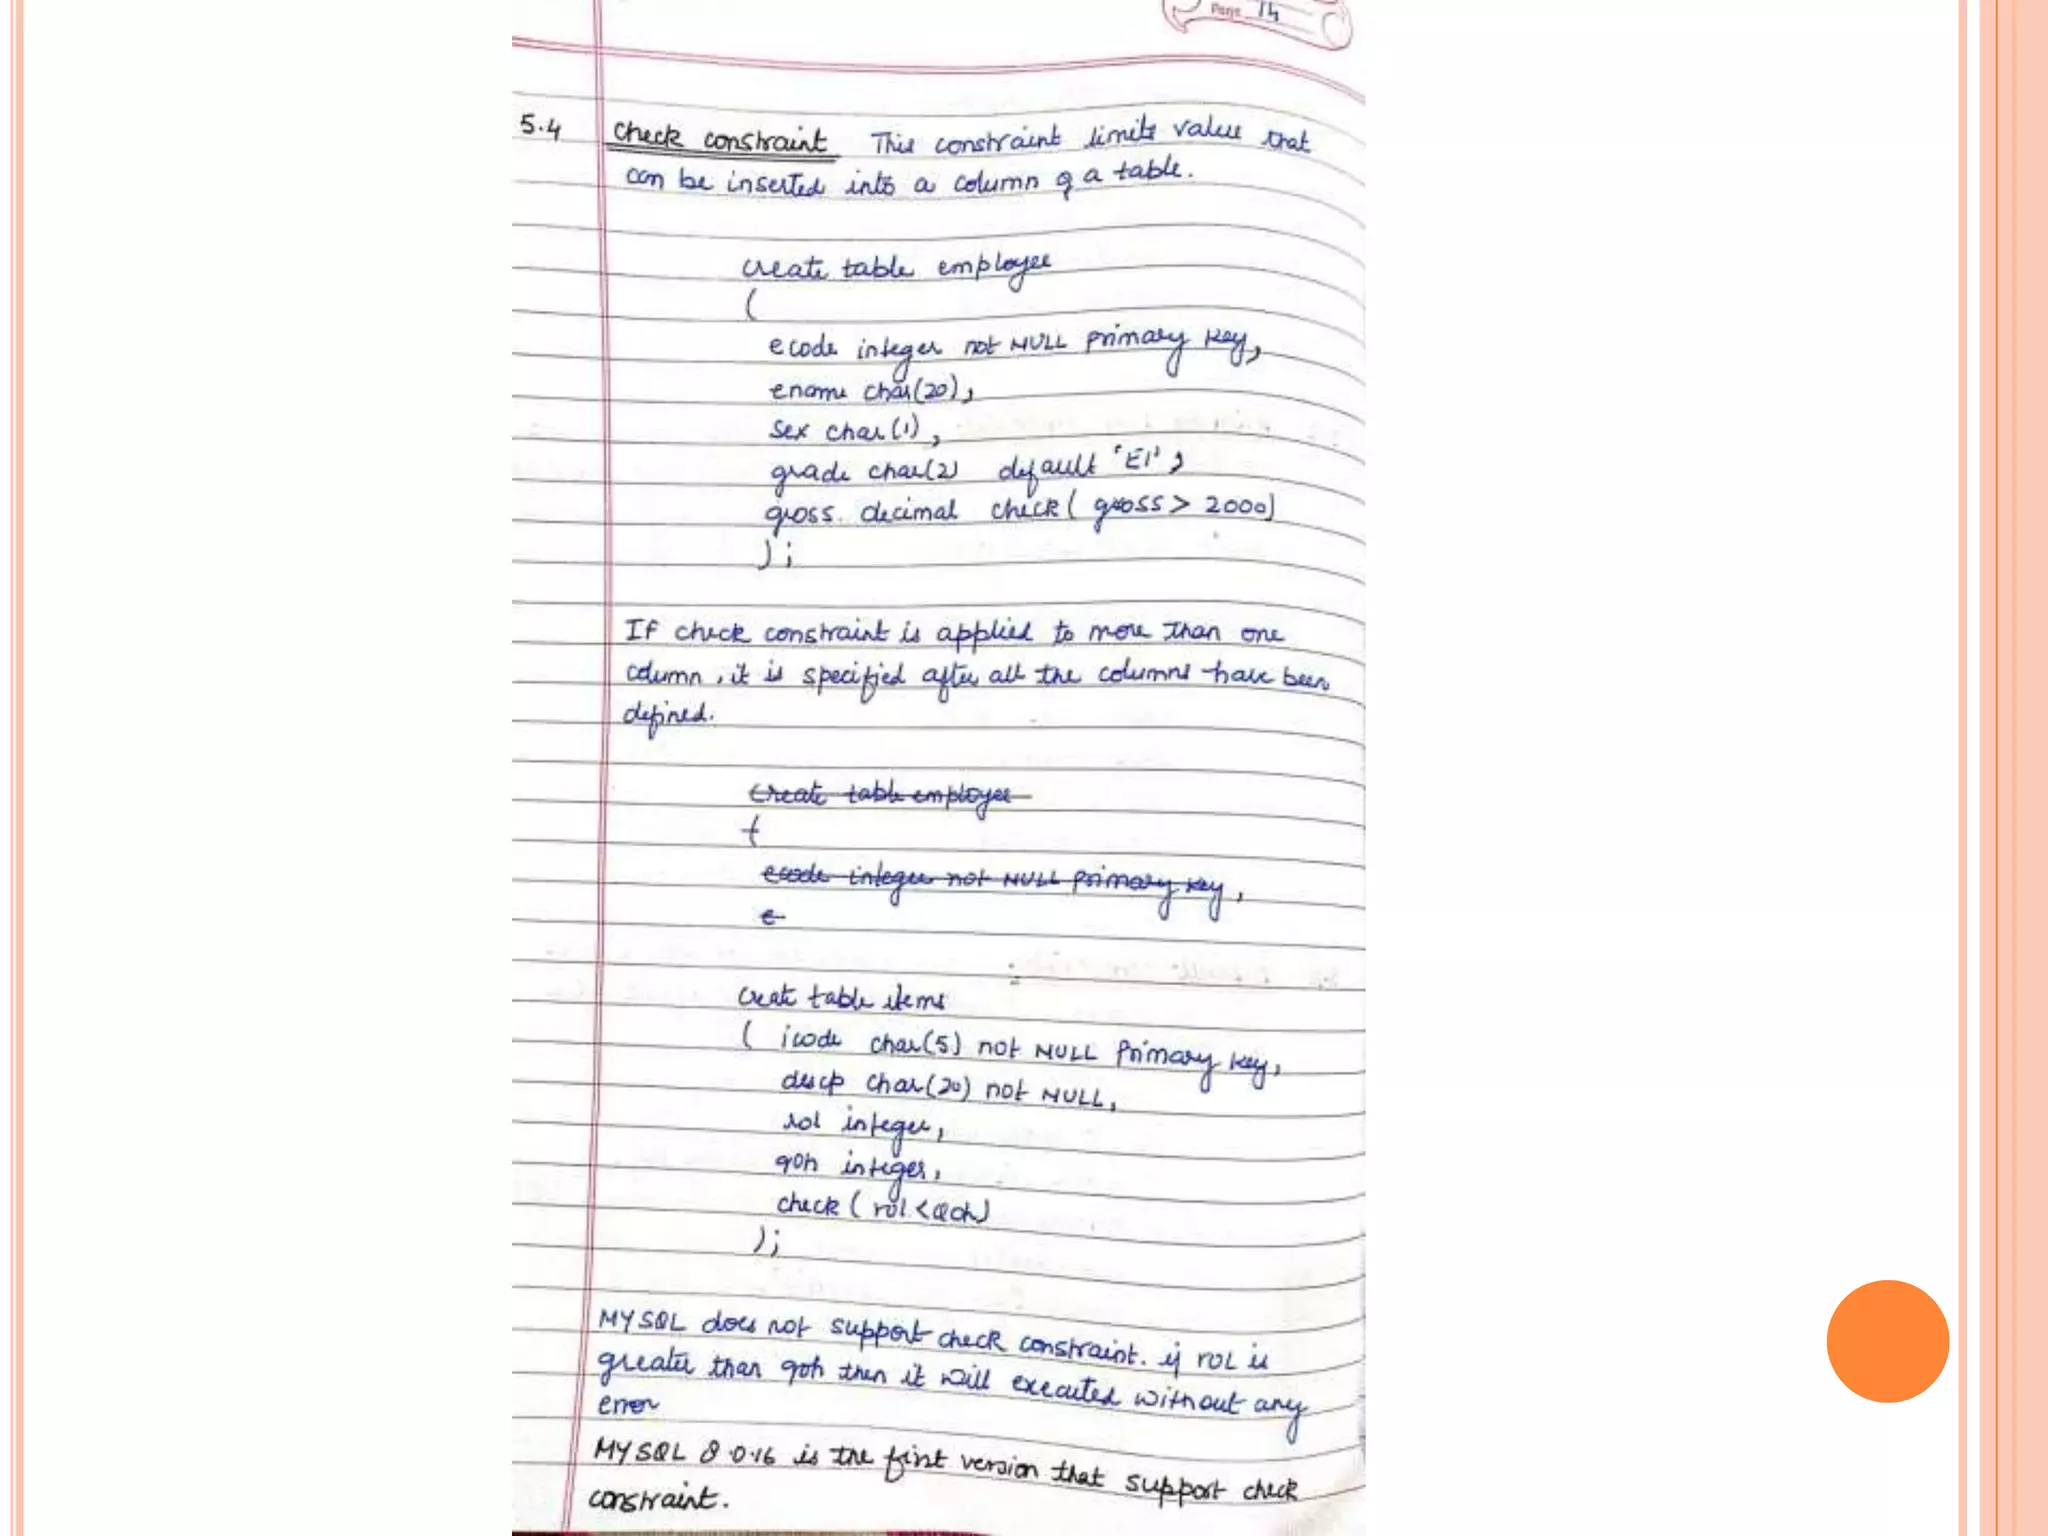 Page 14
5.4 Check constraint This constraint limits value that
can be inserted into a column of a table.
create table employee
(
ecode integer not NULL primary key,
ename char(20),
sex char(1),
grade char(2) default 'E1',
gross decimal check( gross > 2000)
);
If check constraint is applied to more than one
column, it is specified after all the columns have been
defined.
Create table employee
(
ecode integer not NULL primary key,
e
create table items
( icode char(5) not NULL Primary key,
descp char(20) not NULL,
rol integer,
qoh integer,
check ( rol < Qoh)
);
MYSQL does not support check constraint. if rol is
greater than qoh then it will executed without any
error
MYSQL 8.0.16 is the first version that support check
constraint.